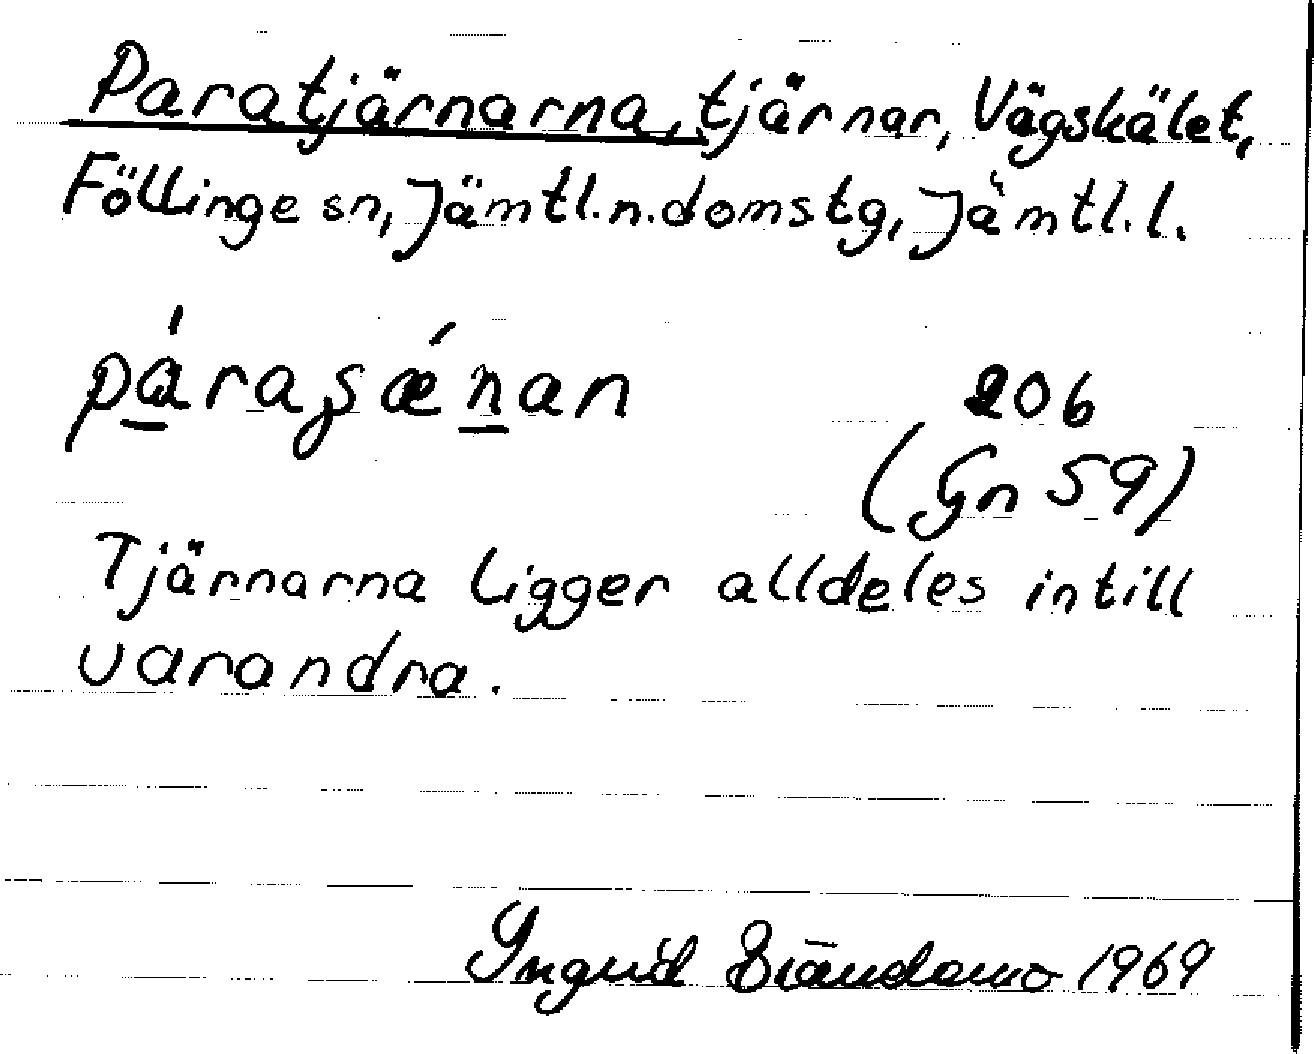 Paratjärnarna, tjärnar, Vägskälet,
Föllinge sn, Jämtl.n.domstg, Jämtl.l.
206
(Gn 59)
Tjärnarna ligger alldeles intill
varandra.
Ingrid 1969